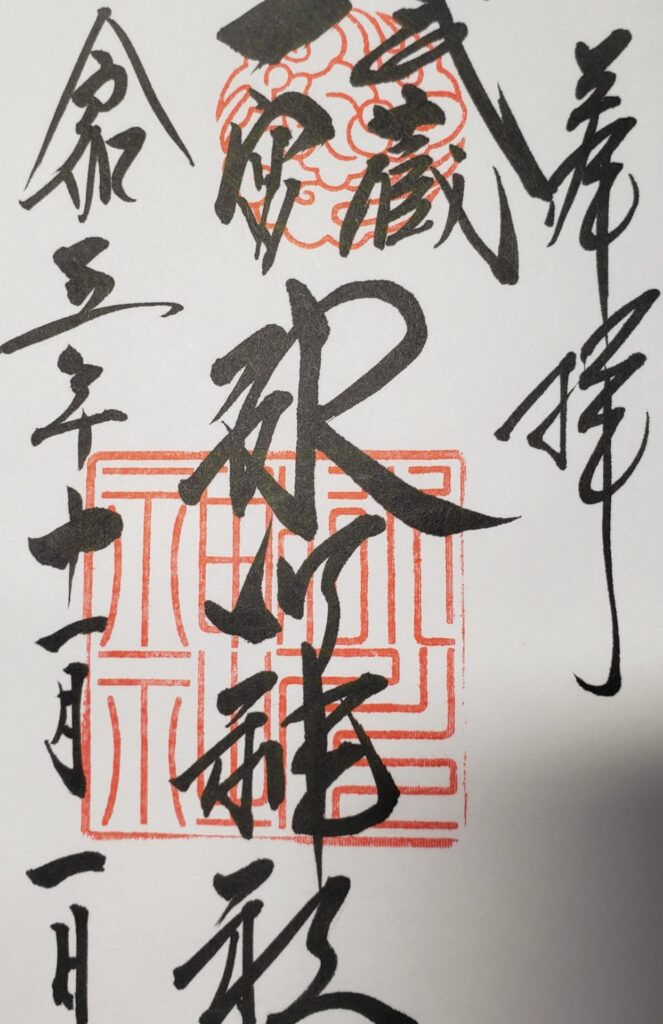 奉拝
武蔵
一宮
氷川神社
令和五年十一月一日